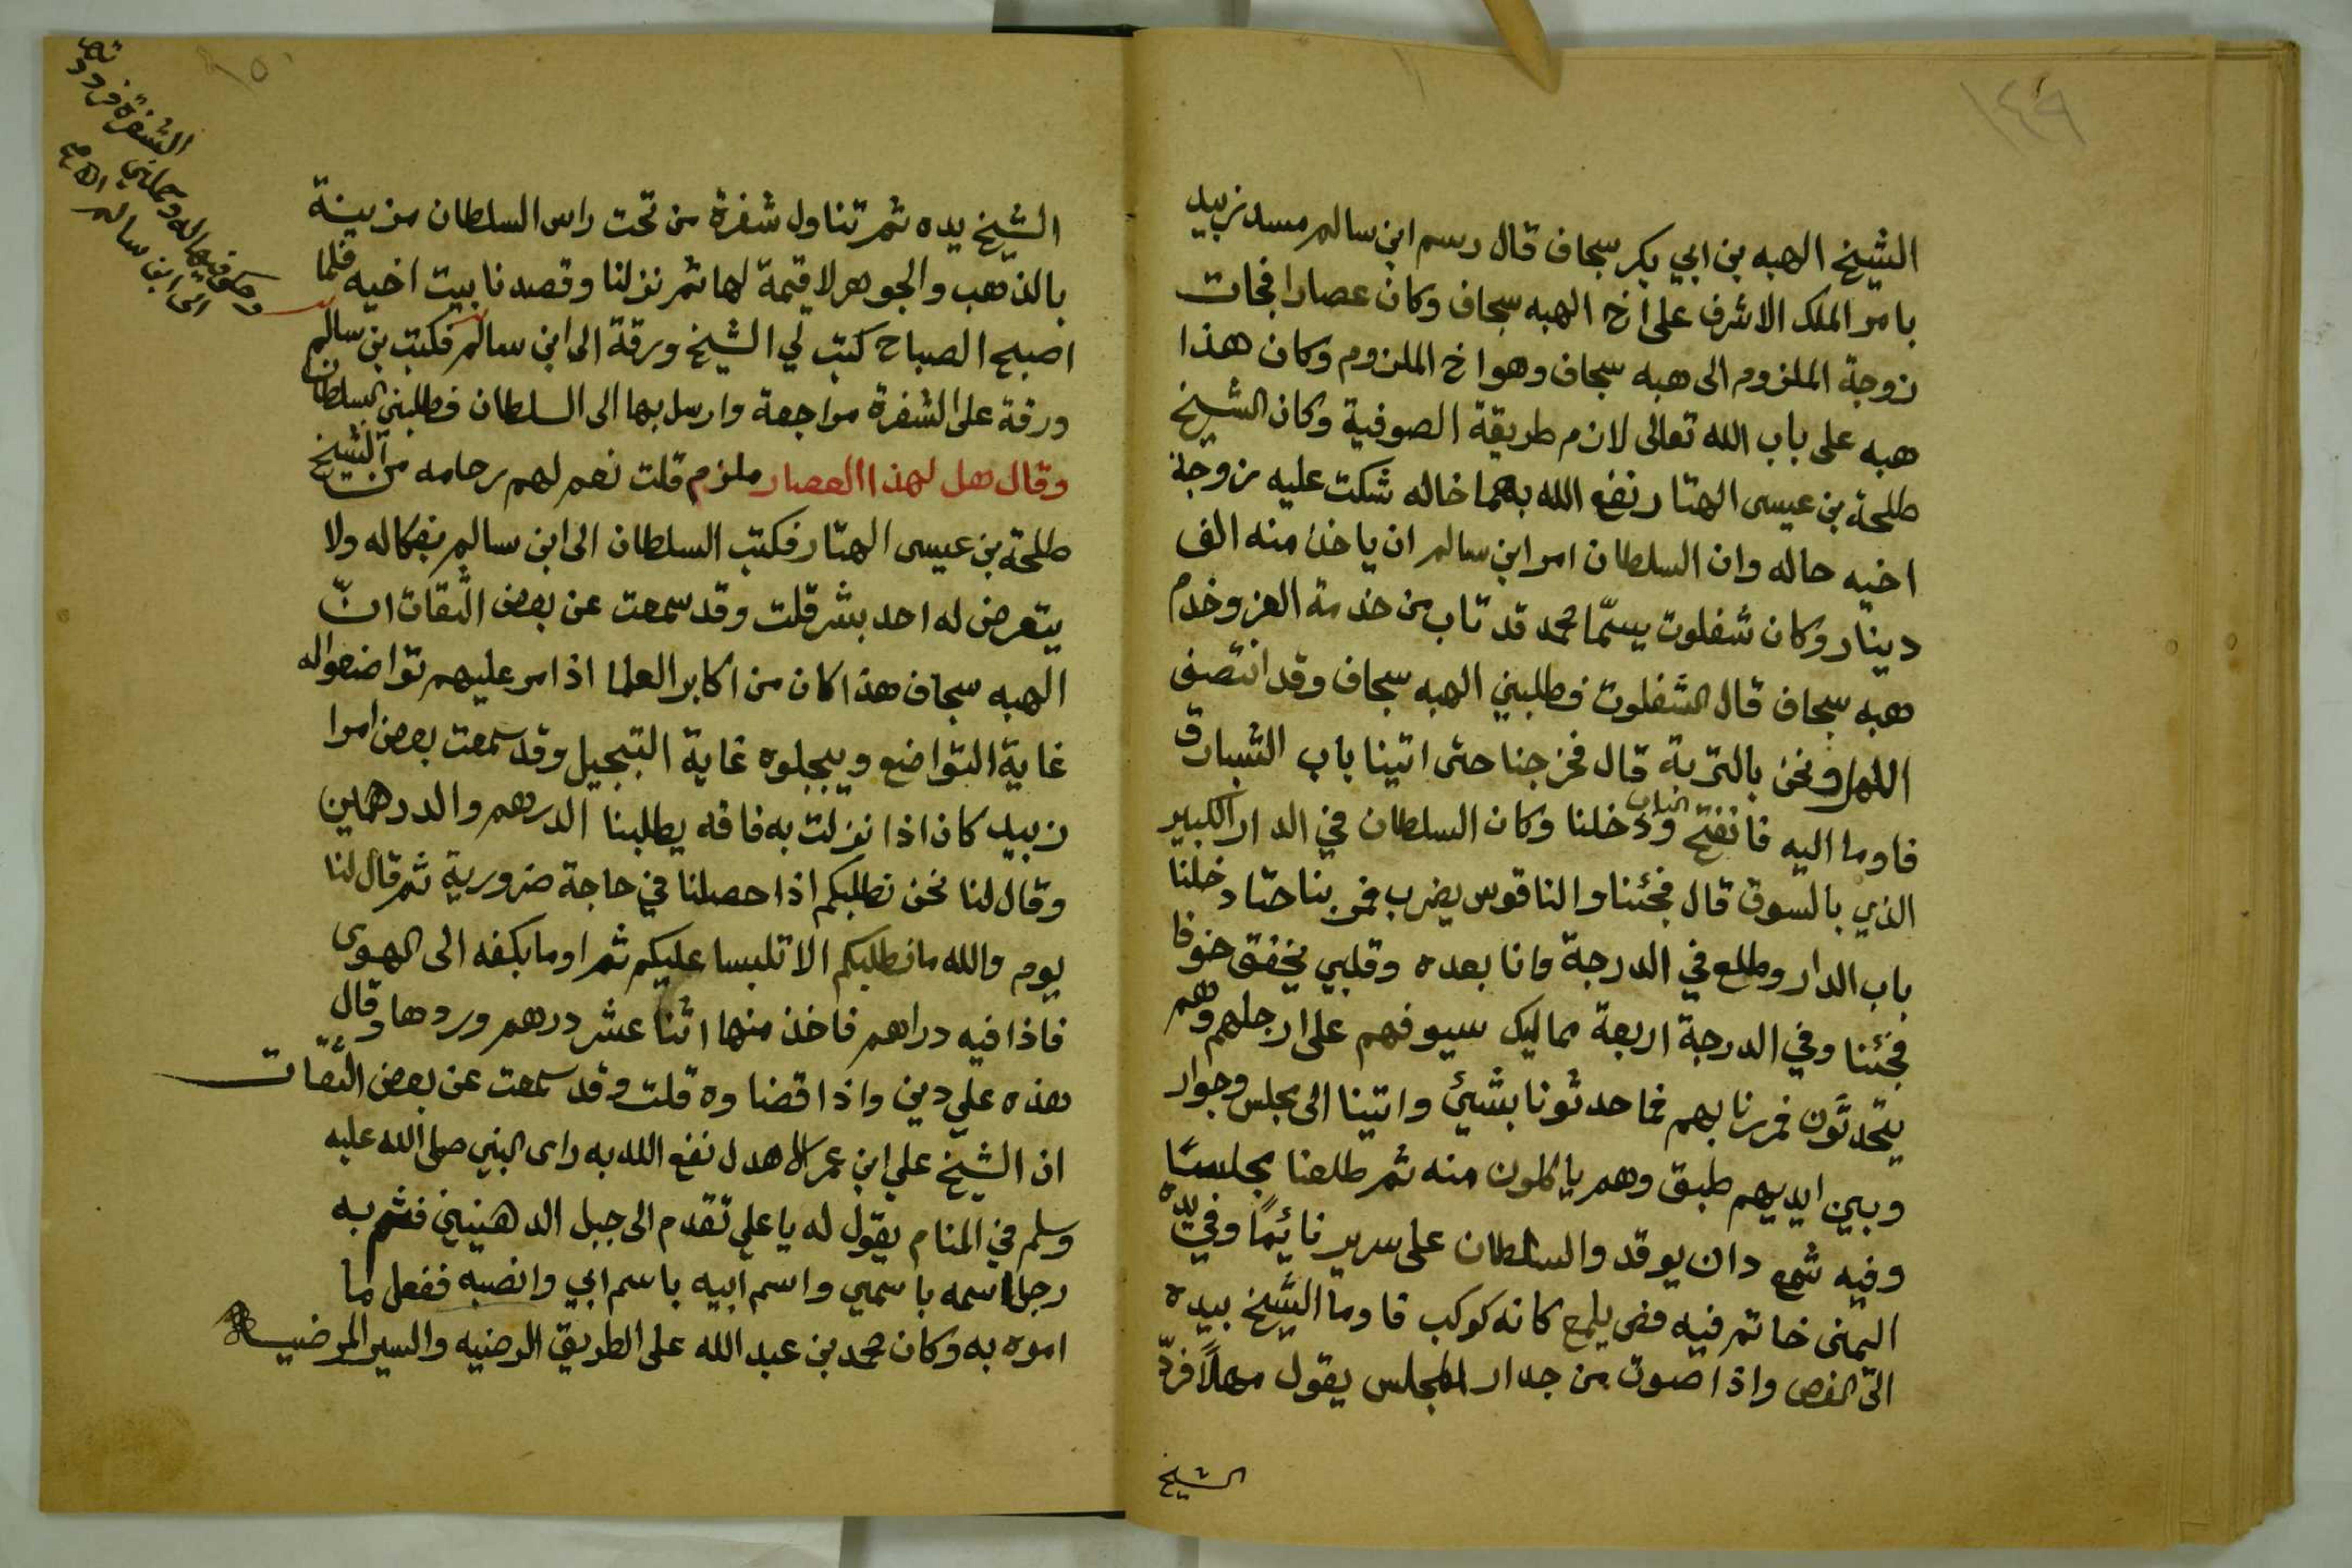 ١٤٩
الشيخ الهبه بن ابي بكر سجاف قال رسم ابن سالم مسد زبيد
بامر الملك الاشرف على اخ الهبه سجاف وكان عصارا فجات
زوجة الملزوم الى هبه سجاف وهو اخ الملزوم وكان هذا
هبه على باب الله تعالى لازم طريقة الصوفية وكان الشيخ
طلحة بن عيسى الهتار نفع الله بهما خاله شكت عليه زوجة
اخيه حاله وان السلطان امر ابن سالم ان ياخذ منه الف
دينار وكان شفلوت يسمّا محمد قد تاب من خدمة الغز وخدم
هبه سجاف قال الشفلوت فطلبني الهبه سجاف وقد انتصف
الليل ونحن بالتربة قال فخرجنا حتى اتينا باب الشبارق
فاوما اليه فانفتح الباب ودخلنا وكان السلطان في الدار الكبير
الذي بالسوق قال فجئنا والناقوس يضرب فمر بنا حتا دخلنا
باب الدار وطلع في الدرجة وانا بعده وقلبي يخفق خوفا
فجئنا وفي الدرجة اربعة مماليك سيوفهم على ارجلهم وهم
يتحدثون فمررنا بهم فما حدثونا بشيئ واتينا الى مجلس وجوار
وبين ايديهم طبق وهم ياكلون منه ثم طلعنا مجلسًا
وفيه شمع دان يوقد والسلطان على سرير نائمًا وفي يده
اليمنى خاتم فيه فص يلمع كانه كوكب فاوما الشيخ بيده
الى الفص واذا صوت من جدار المجلس يقول مهلاً فردّ
الشيخ
الشيخ يده ثم تناول شفرة من تحت راس السلطان مزينة
بالذهب والجوهر لا قيمة لها ثم نزلنا وقصدنا بيت اخيه فلما
اصبح الصباح كتب لي الشيخ ورقة الى ابن سالم فكتب بن سالم
ورقة على الشفرة مراجعة وارسل بها الى السلطان فطلبني السلطان
وقال هل لهذا العصار ملزم قلت نعم لهم رحامه من الشيخ
طلحة بن عيسى الهتار فكتب السلطان الى ابن سالم بفكاله ولا
يتعرض له احد بشر قلت وقد سمعت عن بعض الثقات انّ
الهبه سجاف هذا كان من اكابر العلما اذا مر عليهم تواضعوا له
غاية التواضع ويبجلوه غاية التبجيل وقد سمعت بعض امرا
زبيد كان اذا نزلت به فاقه يطلبنا الدرهم والدرهمين
وقال لنا نحن نطلبكم اذا حصلنا في حاجة ضرورية ثم قال لنا
يوم والله ما نطلبكم الا تلبسا عليكم ثم اوما بكفه الى الهوى
فاذا فيه دراهم فاخذ منها اثنا عشر درهم وردها وقال
هذه علي دين واذا قضاوه قلت وقد سمعت عن بعض الثقات
ان الشيخ علي ابن عمر الاهدل نفع الله به راى النبي صلى الله عليه
وسلم في المنام يقول له يا علي تقدم الى جبل الدهنيين فثم به
رجل اسمه باسمي واسم ابيه باسم ابي وانصبه ففعل ما
امره به وكان محمد بن عبد الله على الطريق الرضيه والسير المرضيه
الشفرة
الى ابن سالم